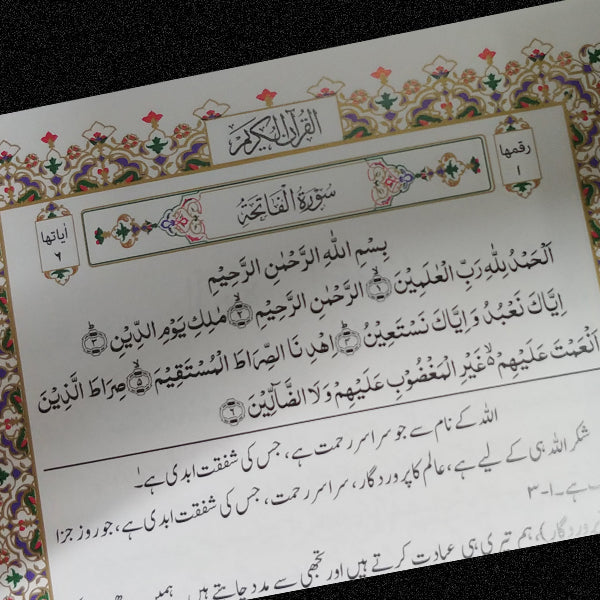 القرآن الكريم
رقمها
١
سُوْرَةُ الْفَاتِحَةِ
اٰیاتها
٦
بِسْمِ اللهِ الرَّحْمٰنِ الرَّحِيْمِ
اَلْحَمْدُ لِلّٰهِ رَبِّ الْعٰلَمِيْنَ ۱ الرَّحْمٰنِ الرَّحِيْمِ ۲ مٰلِكِ يَوْمِ الدِّيْنِ ۳
اِيَّاكَ نَعْبُدُ وَاِيَّاكَ نَسْتَعِيْنُ ۴ اِهْدِنَا الصِّرَاطَ الْمُسْتَقِيْمَ ۵ صِرَاطَ الَّذِيْنَ
اَنْعَمْتَ عَلَيْهِمْ غَيْرِ الْمَغْضُوْبِ عَلَيْهِمْ وَلَا الضَّآلِّيْنَ ۶
اللہ کے نام سے جو سراسر رحمت ہے، جس کی شفقت ابدی ہے۔
شکر اللہ ہی کے لیے ہے، عالم کا پروردگار، سراسر رحمت، جس کی شفقت ابدی ہے، جو روز جزا
ہے۔ ۱-۳
پروردگار)، ہم تیری ہی عبادت کرتے ہیں اور تجھی سے مدد چاہتے ہیں۔ ہمیں